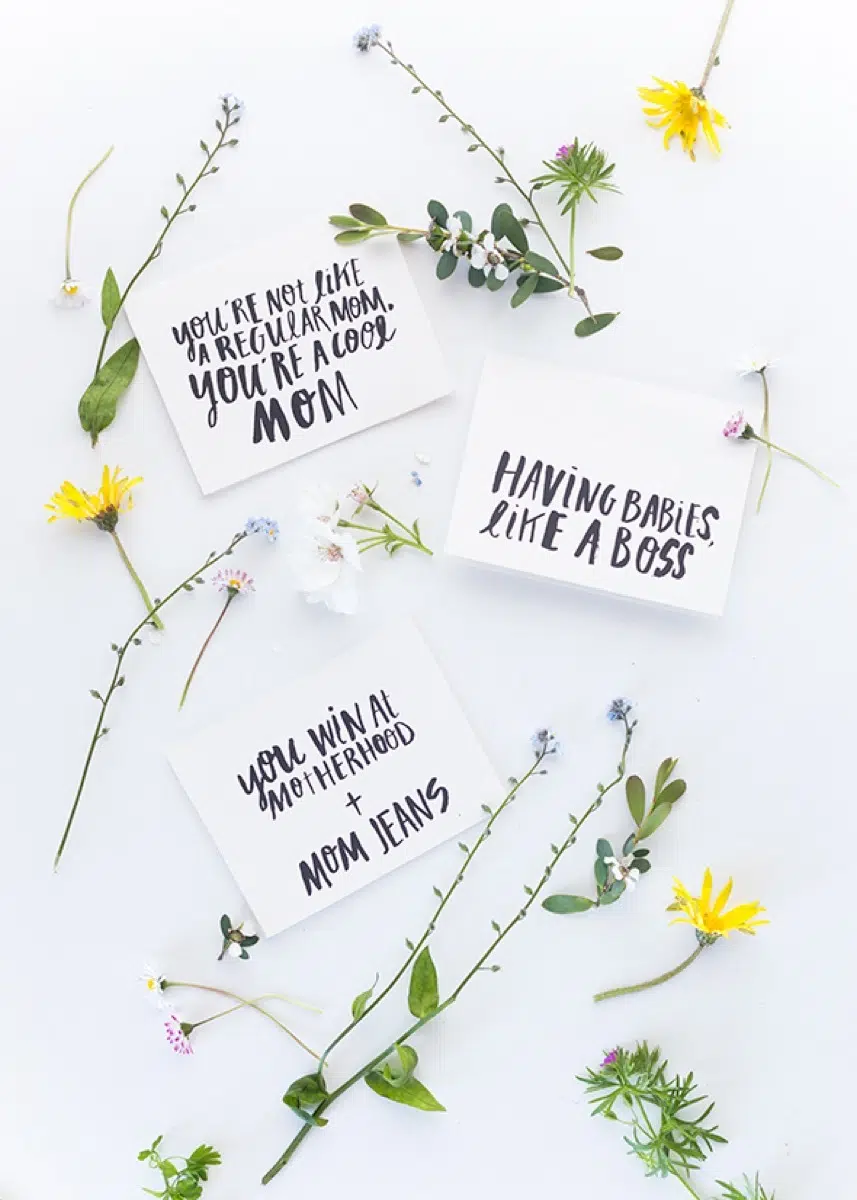 YOU'RE NOt LIKE
A REGULAR MOM.
YOU'RE A COOL
MOM
HAViNG BABiES,
LIKE A BOSS
YOU WiN At
MOtHERHOOD
+
MOM JEANS